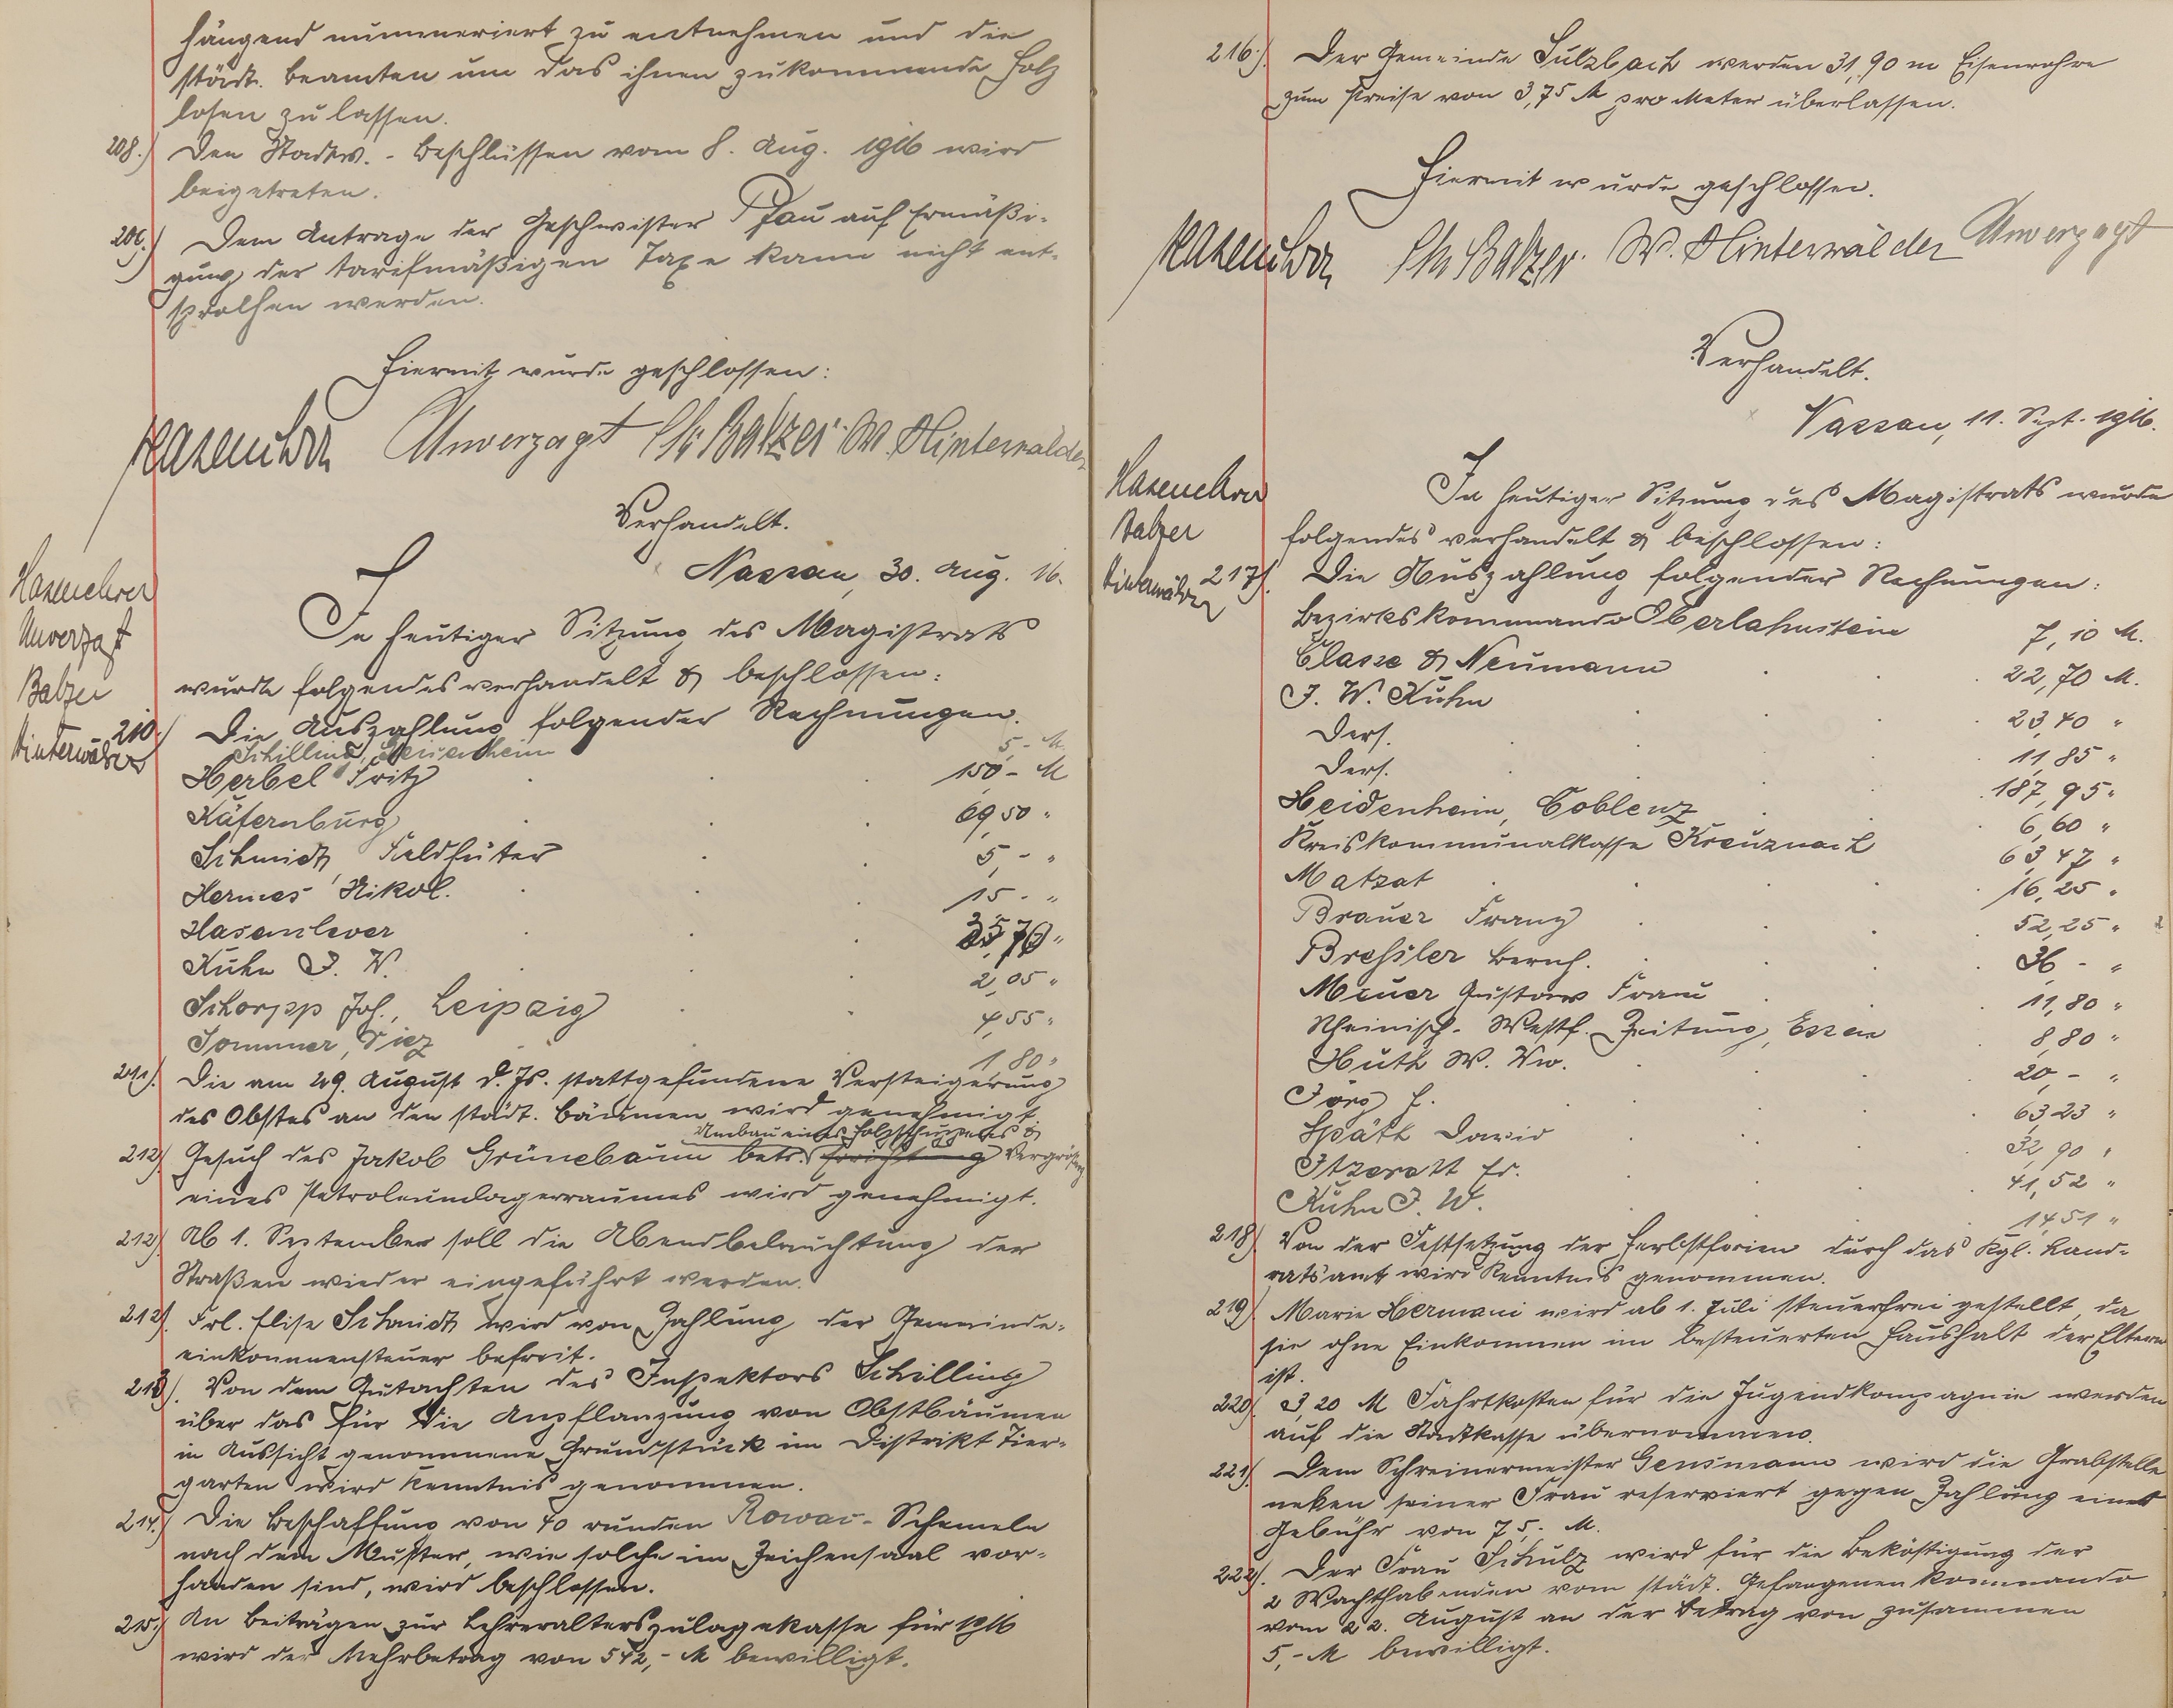 hängend nummeriert zu entnehmen und die
städt. Beamten um das ihnen zukommende Holz
losen zu lassen.
208.) Den Stadtv.-Beschlüssen vom 8. Aug. 1916 wird
beigetreten.
209.) Dem Antrage der Geschwister Pfau auf Ermäßi-
gung der tarifmäßigen Taxe kann nicht ent-
sprochen werden.
Hiermit wurde geschlossen:
Hasenclever Unverzagt Ch. Balzer W. Hinterwälder
Verhandelt.
Nassau, 30. Aug. 16.
Hasenclever
Unverzagt
Balzer
Hinterwälder
In heutiger Sitzung des Magistrats
wurde folgendes verhandelt & beschlossen:
210.) Die Auszahlung folgender Rechnungen.
Schilling, Geisenheim 5,- M.
Herbel Fritz 150,- M
Käfernburg 69,50 "
Schmidt, Feldhüter 5,- "
Hermes Nikol. 15.- "
Hasenclever "
Kuhn J. W. 2,05 "
Schorpp Joh., Leipzig 4,55 "
Sommer, Diez 1,80 "
211.) Die am 29. August d. Js. stattgefundene Versteigerung
des Obstes an den städt. Bäumen wird genehmigt.
Umbau eines Holzschuppens &
212.) Gesuch des Jakob Grünebaum betr. Errichtung Vergröß.
eines Petroleumlagerraumes wird genehmigt.
212.) Ab 1. September soll die Abendbeleuchtung der
Straßen wieder eingeführt werden.
212.) Frl. Elise Schmidt wird von Zahlung der Gemeinde-
einkommensteuer befreit.
213.) Von dem Gutachten des Inspektors Schilling
über das für die Anpflanzung von Obstbäumen
in Aussicht genommene Grundstück im Distrikt Tier-
garten wird Kenntnis genommen.
214.) Die Beschaffung von 40 runden Rowac-Schemeln
nach dem Muster, wie solche im Zeichensaal vor-
handen sind, wird beschlossen.
215.) An Beiträgen zur Lehreralterszulagekasse für 1916
wird der Mehrbetrag von 542,- M bewilligt.
216.) Der Gemeinde Sulzbach werden 31,90 m Eisenrohre
zum Preise von 3,75 M pro Meter überlassen.
Hiermit wurde geschlossen.
Hasenclever Ch. Balzer W. Hinterwälder Unverzagt
Verhandelt.
Nassau, 11. Sept. 1916.
Hasenclever
Balzer
Hinterwälder
In heutiger Sitzung des Magistrats wurde
folgendes verhandelt & beschlossen:
217.) Die Auszahlung folgender Rechnungen:
Bezirkskommando Oberlahnstein 7,10 M.
Classe & Neumann 22,70 M.
J. W. Kuhn 23,40 "
Ders. 11,85 "
Ders. 187,95 "
Heidenheim, Coblenz 6,60 "
Kreiskommunalkasse Kreuznach 63,47 "
Matzat 16,25 "
Brauer Franz 52,25 "
Bressler Bernh. 36,- "
Meuer Gustav Frau 11,80 "
Rheinisch-Westf. Zeitung, Essen 8,80 "
Huth W. Ww. 20,- "
Jörg H. 63,23 "
Späth David 32,90 "
Itzerott Fr. 41,52 "
Kuhn J. W. 14,51 "
218.) Von der Festsetzung der Herbstferien durch das Kgl. Land-
ratsamt wird Kenntnis genommen.
219.) Marie Hermani wird ab 1. Juli steuerfrei gestellt, da
sie ohne Einkommen im besteuerten Haushalt der Eltern
ist.
220.) 3,20 M Fahrtkosten für die Jugendkompagnie werden
auf die Stadtkasse übernommen.
221.) Dem Schreinermeister Gensmann wird die Grabstelle
neben seiner Frau reserviert gegen Zahlung einer
Gebühr von 75,- M.
222.) Der Frau Schulz wird für die Beköstigung der
2 Wachthabenden vom städt. Gefangenenkommando
vom 22. August an der Betrag von zusammen
5,- M bewilligt.